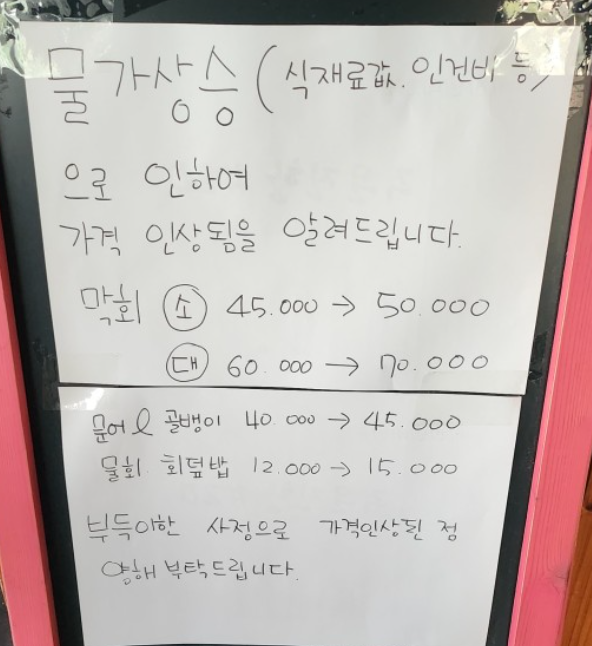 물가상승(식재료값. 인건비 등)
으로 인하여
가격 인상됨을 알려드립니다.
막회 소 45.000 → 50.000
대 60.000 → 70.000
문어 & 골뱅이 40.000 → 45.000
물회. 회덮밥 12.000 → 15.000
부득이한 사정으로 가격인상된 점
양해 부탁드립니다.